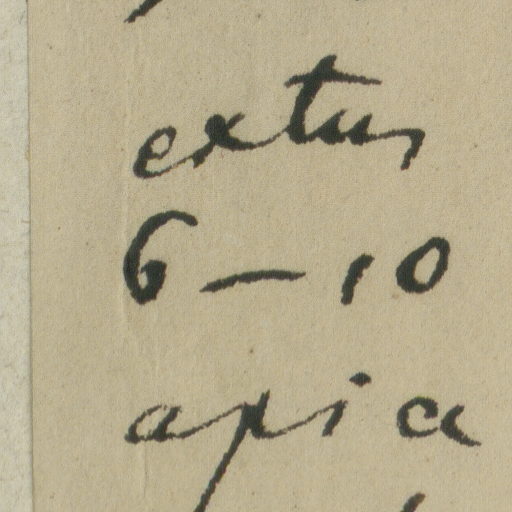 extus
6-10
apice